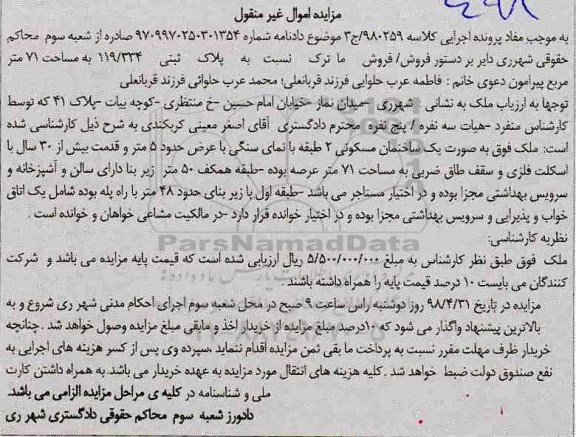 مزایده اموال غیر منقول
به موجب مفاد پرونده اجرایی کلاسه ۹۸۰۲۵۹/ج۳ موضوع دادنامه شماره ۹۷۰۹۹۷۰۲۵۰۳۰۱۳۵۴ صادره از شعبه سوم محاکم
حقوقی شهرری دایر بر دستور فروش/ فروش ما ترک نسبت به پلاک ثبتی ۱۱۹/۳۳۴ به مساحت ۷۱ متر
مربع پیرامون دعوی خانم : فاطمه عرب حلوایی فرزند قربانعلی؛ محمد عرب حلوائی فرزند قربانعلی
توجها به ارزیاب ملک به نشانی : شهرری -میدان نماز -خیابان امام حسین -خ منتظری -کوچه بیات -پلاک ۴۱ که توسط
کارشناس منفرد -هیات سه نفره / پنج نفره محترم دادگستری آقای اصغر معینی کربکندی به شرح ذیل کارشناسی شده
است: ملک فوق به صورت یک ساختمان مسکونی ۲ طبقه با نمای سنگی با عرض حدود ۵ متر و قدمت بیش از ۳۰ سال با
اسکلت فلزی و سقف طاق ضربی به مساحت ۷۱ متر عرصه بوده -طبقه همکف ۵۰ متر زیر بنا دارای سالن و آشپزخانه و
سرویس بهداشتی مجزا بوده و در اختیار مستاجر می باشد -طبقه اول با زیر بنای حدود ۴۸ متر با راه پله بوده شامل یک اتاق
خواب و پذیرایی و سرویس بهداشتی مجزا بوده و در اختیار خوانده قرار دارد -در مالکیت مشاعی خواهان و خوانده است .
نظریه کارشناسی:
ملک فوق طبق نظر کارشناس به مبلغ ۵/۵۰۰/۰۰۰/۰۰۰ ریال ارزیابی شده است که قیمت پایه مزایده می باشد و شرکت
کنندگان می بایست ۱۰ درصد قیمت پایه را همراه داشته باشند .
مزایده در تاریخ ۹۸/۴/۳۱ روز دوشنبه راس ساعت ۹ صبح در محل شعبه سوم اجرای احکام مدنی شهر ری شروع و به
بالاترین پیشنهاد واگذار می شود که ۱۰درصد مبلغ مزایده از خریدار اخذ و مابقی مبلغ مزایده وصول خواهد شد . چنانچه
خریدار ظرف مهلت مقرر نسبت به پرداخت ما بقی ثمن مزایده اقدام ننماید ،سپرده وی پس از کسر هزینه های اجرایی به
نفع صندوق دولت ضبط خواهد شد .کلیه هزینه های انتقال مورد مزایده به عهده خریدار می باشد. به همراه داشتن کارت
ملی و شناسنامه در کلیه ی مراحل مزایده الزامی می باشد.
دادورز شعبه سوم محاکم حقوقی دادگستری شهر ری
ParsNamadData